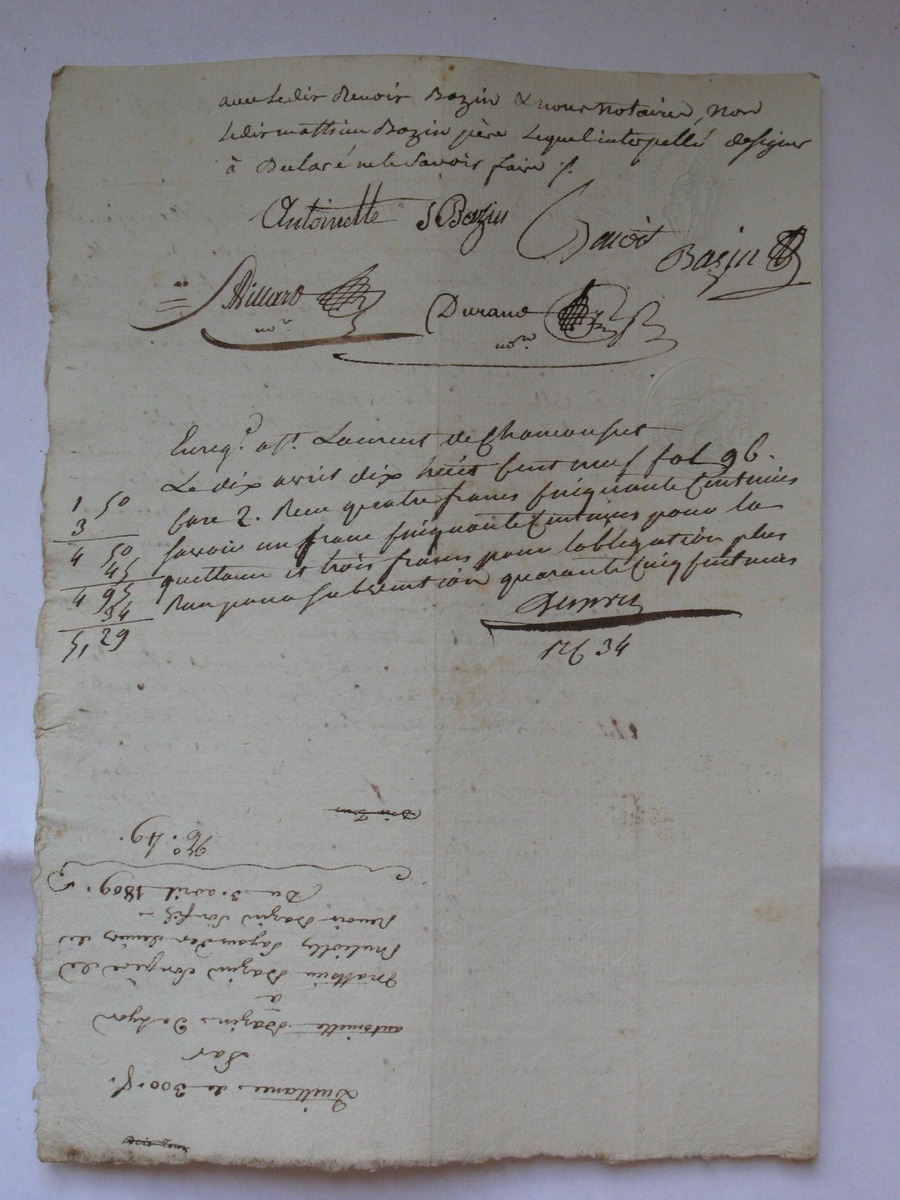 avec ledit Benoit Bazin & nous notaires, non
ledit mathieu Bazin père lequel interpellé de signer
à Declaré ne le savoir faire /.
Antoinette Bazin Benoit
Bazin
Villard Durand
no.re no.re
Enreg.é à St. Laurent de Chamousset
Le dix avril dix huit cent neuf fol 96.
Case 2. Recu quatre francs cinquante Centimes
savoir un franc cinquante Centimes pour la
quittance et trois francs pour lobligation plus
Recu pour subvention quarante Cinq Centimes
1 50
3
4 50
45
4 95
34
5, 29
34
Quittance de 300 f.
Par
antoinette Bazin De Lyon
a
Mathieu Bazin Son père des
Benoit Bazin Son fils
Du 3. avril 1809.
N.o 49.